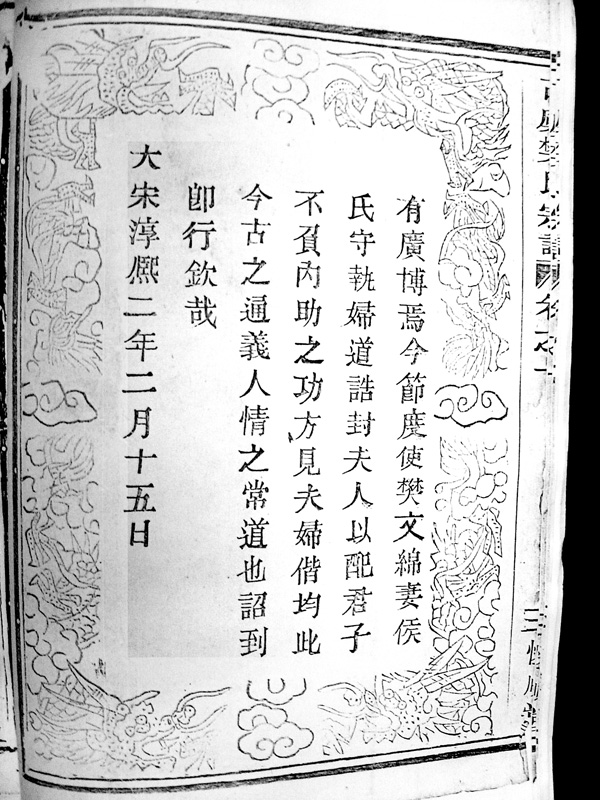 有廣博焉今節度使樊文綿妻侯
氏守執婦道誥封夫人以配君子
不負內助之功方見夫婦偕均此
今古之通義人情之常道也詔到
卽行欽哉
大宋淳熈二年二月十五日
樊氏宗譜